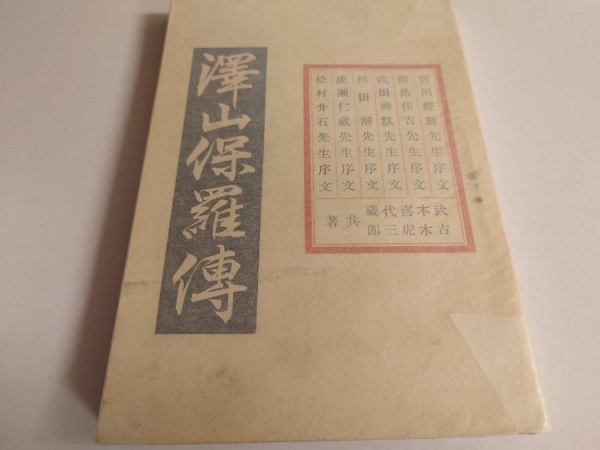 宮川經輝先生序文
綱島佳吉先生序文
武田猷先生序文
杉田潮先生序文
成瀬仁蔵先生序文
松村介石先生序文
武本喜代蔵
古木虎三郎
共著
澤山保羅傳